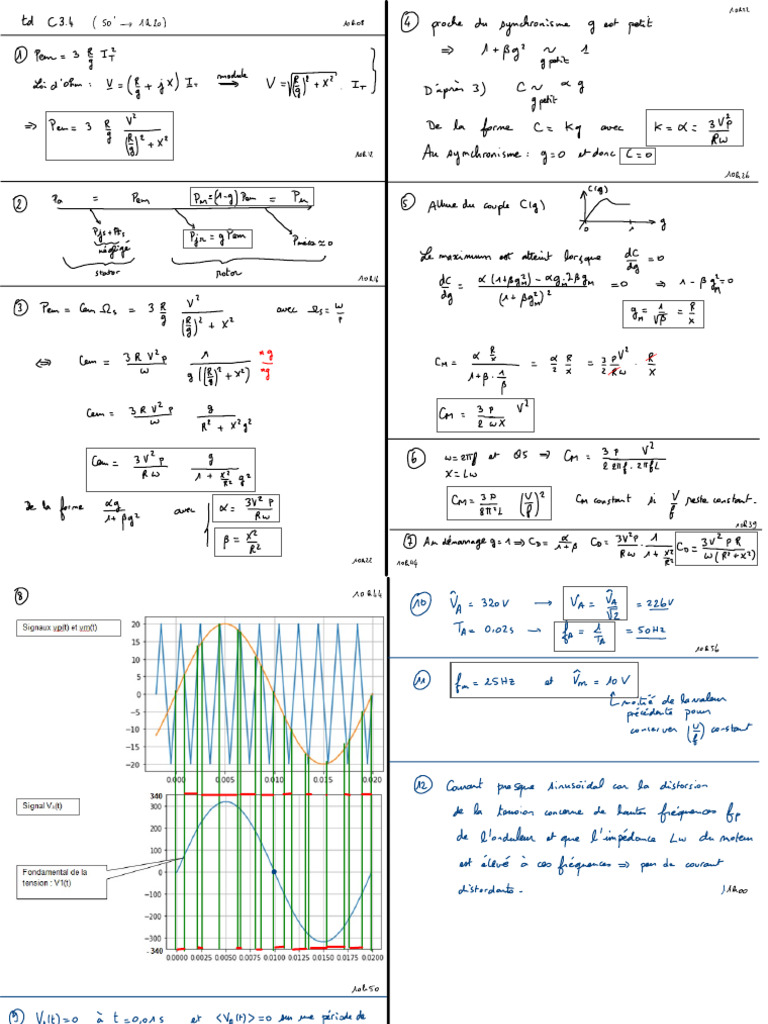 td C3.4 (50' → 1h20) 10h08
① Pem = 3 R/g I_T²
Loi d'ohm : V = (R/g + jX) I_T module → V = √((R/g)² + X²) . I_T
⇒ Pem = 3 R/g V²/((R/g)² + X²)
10h12
② Pa = Pem Pm=(1-g)Pem = Pu
Pjs + Pfs négligé
Pjr = g Pem
Pméca ≃ 0
stator rotor
10h16
③ Pem = Cem Ωs = 3 R/g V²/((R/g)² + X²) avec Ωs = ω/p
⇔ Cem = 3RV²p/ω 1/(g((R/g)² + X²)) ×g/×g
Cem = 3RV²p/ω g/(R² + X²g²)
Cem = 3V²p/Rω g/(1 + X²/R² g²)
de la forme αg/(1+βg²) avec α = 3V²p/Rω
β = X²/R²
10h22
10h22
④ proche du synchronisme g est petit
⇒ 1 + βg² ~ 1
g petit
D'après 3) C ~ αg
g petit
De la forme C = Kg avec K = α = 3V²p/Rω
Au synchronisme : g=0 et donc C=0
10h26
⑤ Allure du couple C(g)
C(g)
0 1 g
Le maximum est atteint lorsque dC/dg = 0
dC/dg = (α(1+βg_M²) - αg_M.2βg_M)/(1+βg_M²)² = 0 ⇒ 1 - βg_M² = 0
g_M = 1/√β = R/X
C_M = (α R/X)/(1+β.1/β) = α/2 R/X = 3/2 pV²/Rω . R/X
C_M = 3p/2ωX V²
⑥ ω=2πf et Q5 ⇒ C_M = 3p/2 V²/(2πf.2πfL)
X = Lω
C_M = 3p/8π²L (V/f)² C_M constant si V/f reste constant.
10h39
⑦ Au démarrage g=1 ⇒ C_D = α/(1+β) C_D = 3V²p/Rω . 1/(1+X²/R²) C_D = 3V²pR/(ω(R²+X²))
10h44
⑧ 10h44
Signaux vp(t) et vm(t)
20
15
10
5
0
−5
−10
−15
−20
0.000 0.005 0.010 0.015 0.020
Signal Vₐ(t)
340
300
200
100
0
−100
−200
−300
-340
0.0000 0.0025 0.0050 0.0075 0.0100 0.0125 0.0150 0.0175 0.0200
Fondamental de la
tension : V1(t)
10h50
⑨ V₁(t)=0 à t=0,01s et <Va(t)>=0 sur une période de
⑩ V̂_A = 320V → V_A = V̂_A/√2 = 226V
T_A = 0.02s → f_A = 1/T_A = 50Hz
10h56
⑪ f_m = 25Hz et V̂_m = 10V
moitié de la valeur
précédente pour
conserver (V/f) constant
⑫ Courant presque sinusoïdal car la distorsion
de la tension concerne de hautes fréquences fp
de l'onduleur et que l'impédance Lω du moteur
est élevé à ces fréquences ⇒ peu de courant
distordante.
11h00